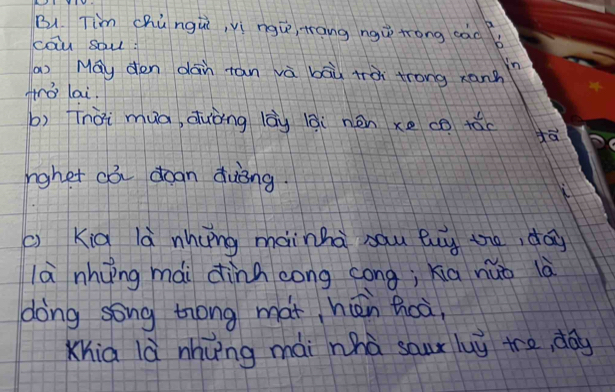 B1. Tìm chủ ngữ, vị ngữ, trạng ngữ trong các
câu sau:
a) Mây đen dần tan và bầu trời trong xanh
trở lại.
b) Trời mưa, đường lầy lội nên xe cộ tắc
nghẹt cả đoạn đường.
c) Kia là những mái nhà sau luỹ tre, đây
là những mái đình cong cong; kia nữa là
dòng sông trong mát, hiền hoà,
Khia là những mái nhà sau luỹ tre, đây